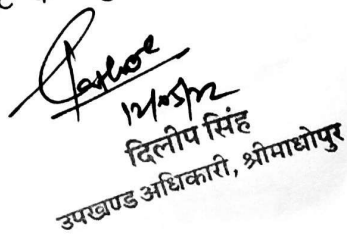 12/05/22
दिलीप सिंह
उपखण्ड अधिकारी, श्रीमाधोपुर